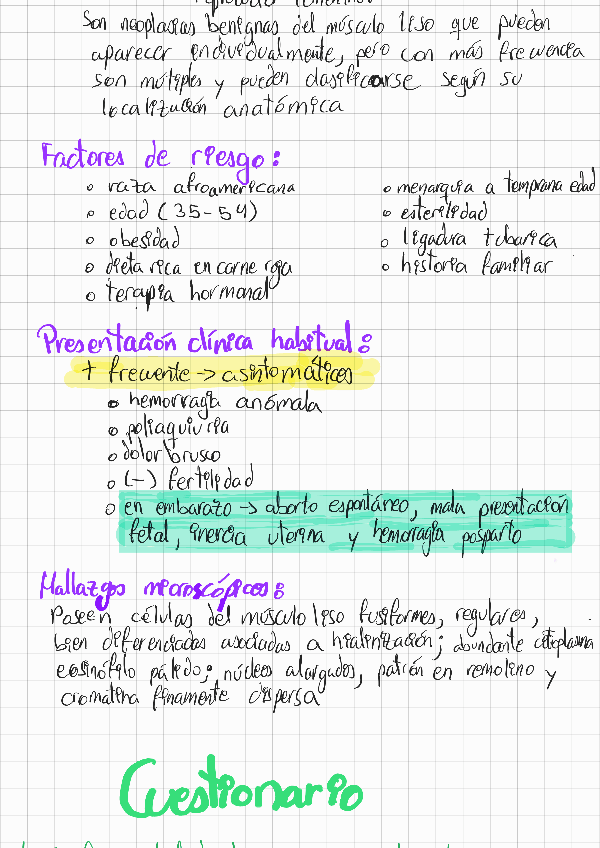 Son neoplasias benignas del músculo liso que pueden
aparecer individualmente, pero con más frecuencia
son múltiples y pueden clasificarse según su
localización anatómica
Factores de riesgo:
o raza afroamericana
o edad (35-54)
o obesidad
o dieta rica en carne roja
o terapia hormonal
o menarquia a temprana edad
o esterilidad
o ligadura tubarica
o historia familiar
Presentación clínica habitual:
+ frecuente -> asintomáticos
o hemorragia anómala
o poliaquiuria
o dolor brusco
o (-) fertilidad
o en embarazo -> aborto espontáneo, mala presentación
fetal, inercia uterina y hemorragia posparto
Hallazgos microscópicos:
Poseen células del músculo liso fusiformes, regulares,
bien diferenciadas asociadas a hialinización; abundante citoplasma
eosinófilo pálido; núcleos alargados, patrón en remolino y
cromatina finamente dispersa
Cuestionario